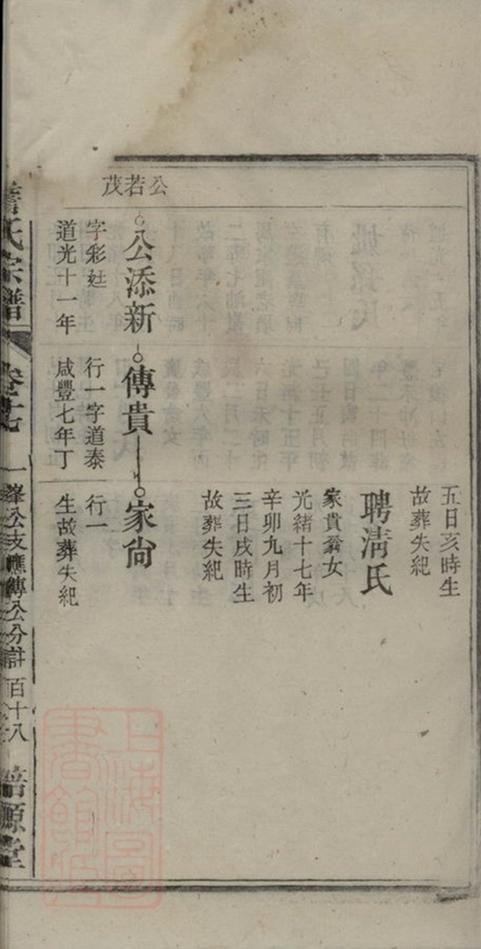 五日亥時生
故葬失紀
聘清氏
家貴翁女
光緒十七年
辛卯九月初
三日戌時生
故葬失紀
公若茂
公添新
字彩廷
道光十一年
傳貴
行一字道泰
咸豐七年丁
家尙
行一
生故葬失紀
氏宗譜
卷十七
一峯公支應傳公分計
百十八
培源堂
上海圖書館藏